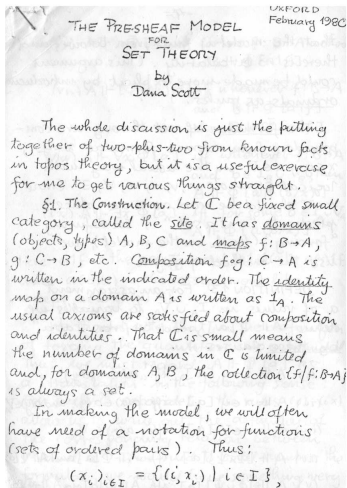 OXFORD
February 1980
THE PRESHEAF MODEL
FOR
SET THEORY
by
Dana Scott
The whole discussion is just the putting
together of two-plus-two from known facts
in topos theory, but it is a useful exercise
for me to get various things straight.
§1. The Construction. Let ℂ be a fixed small
category, called the site. It has domains
(objects, types) A, B, C and maps f: B→A,
g: C→B, etc. Composition f∘g: C→A is
written in the indicated order. The identity
map on a domain A is written as 1_A. The
usual axioms are satisfied about composition
and identities. That ℂ is small means
the number of domains in ℂ is limited
and, for domains A, B, the collection {f|f:B→A}
is always a set.
In making the model, we will often
have need of a notation for functions
(sets of ordered pairs). Thus:
(x_i)_{i∈I} = {(i, x_i) | i ∈ I},